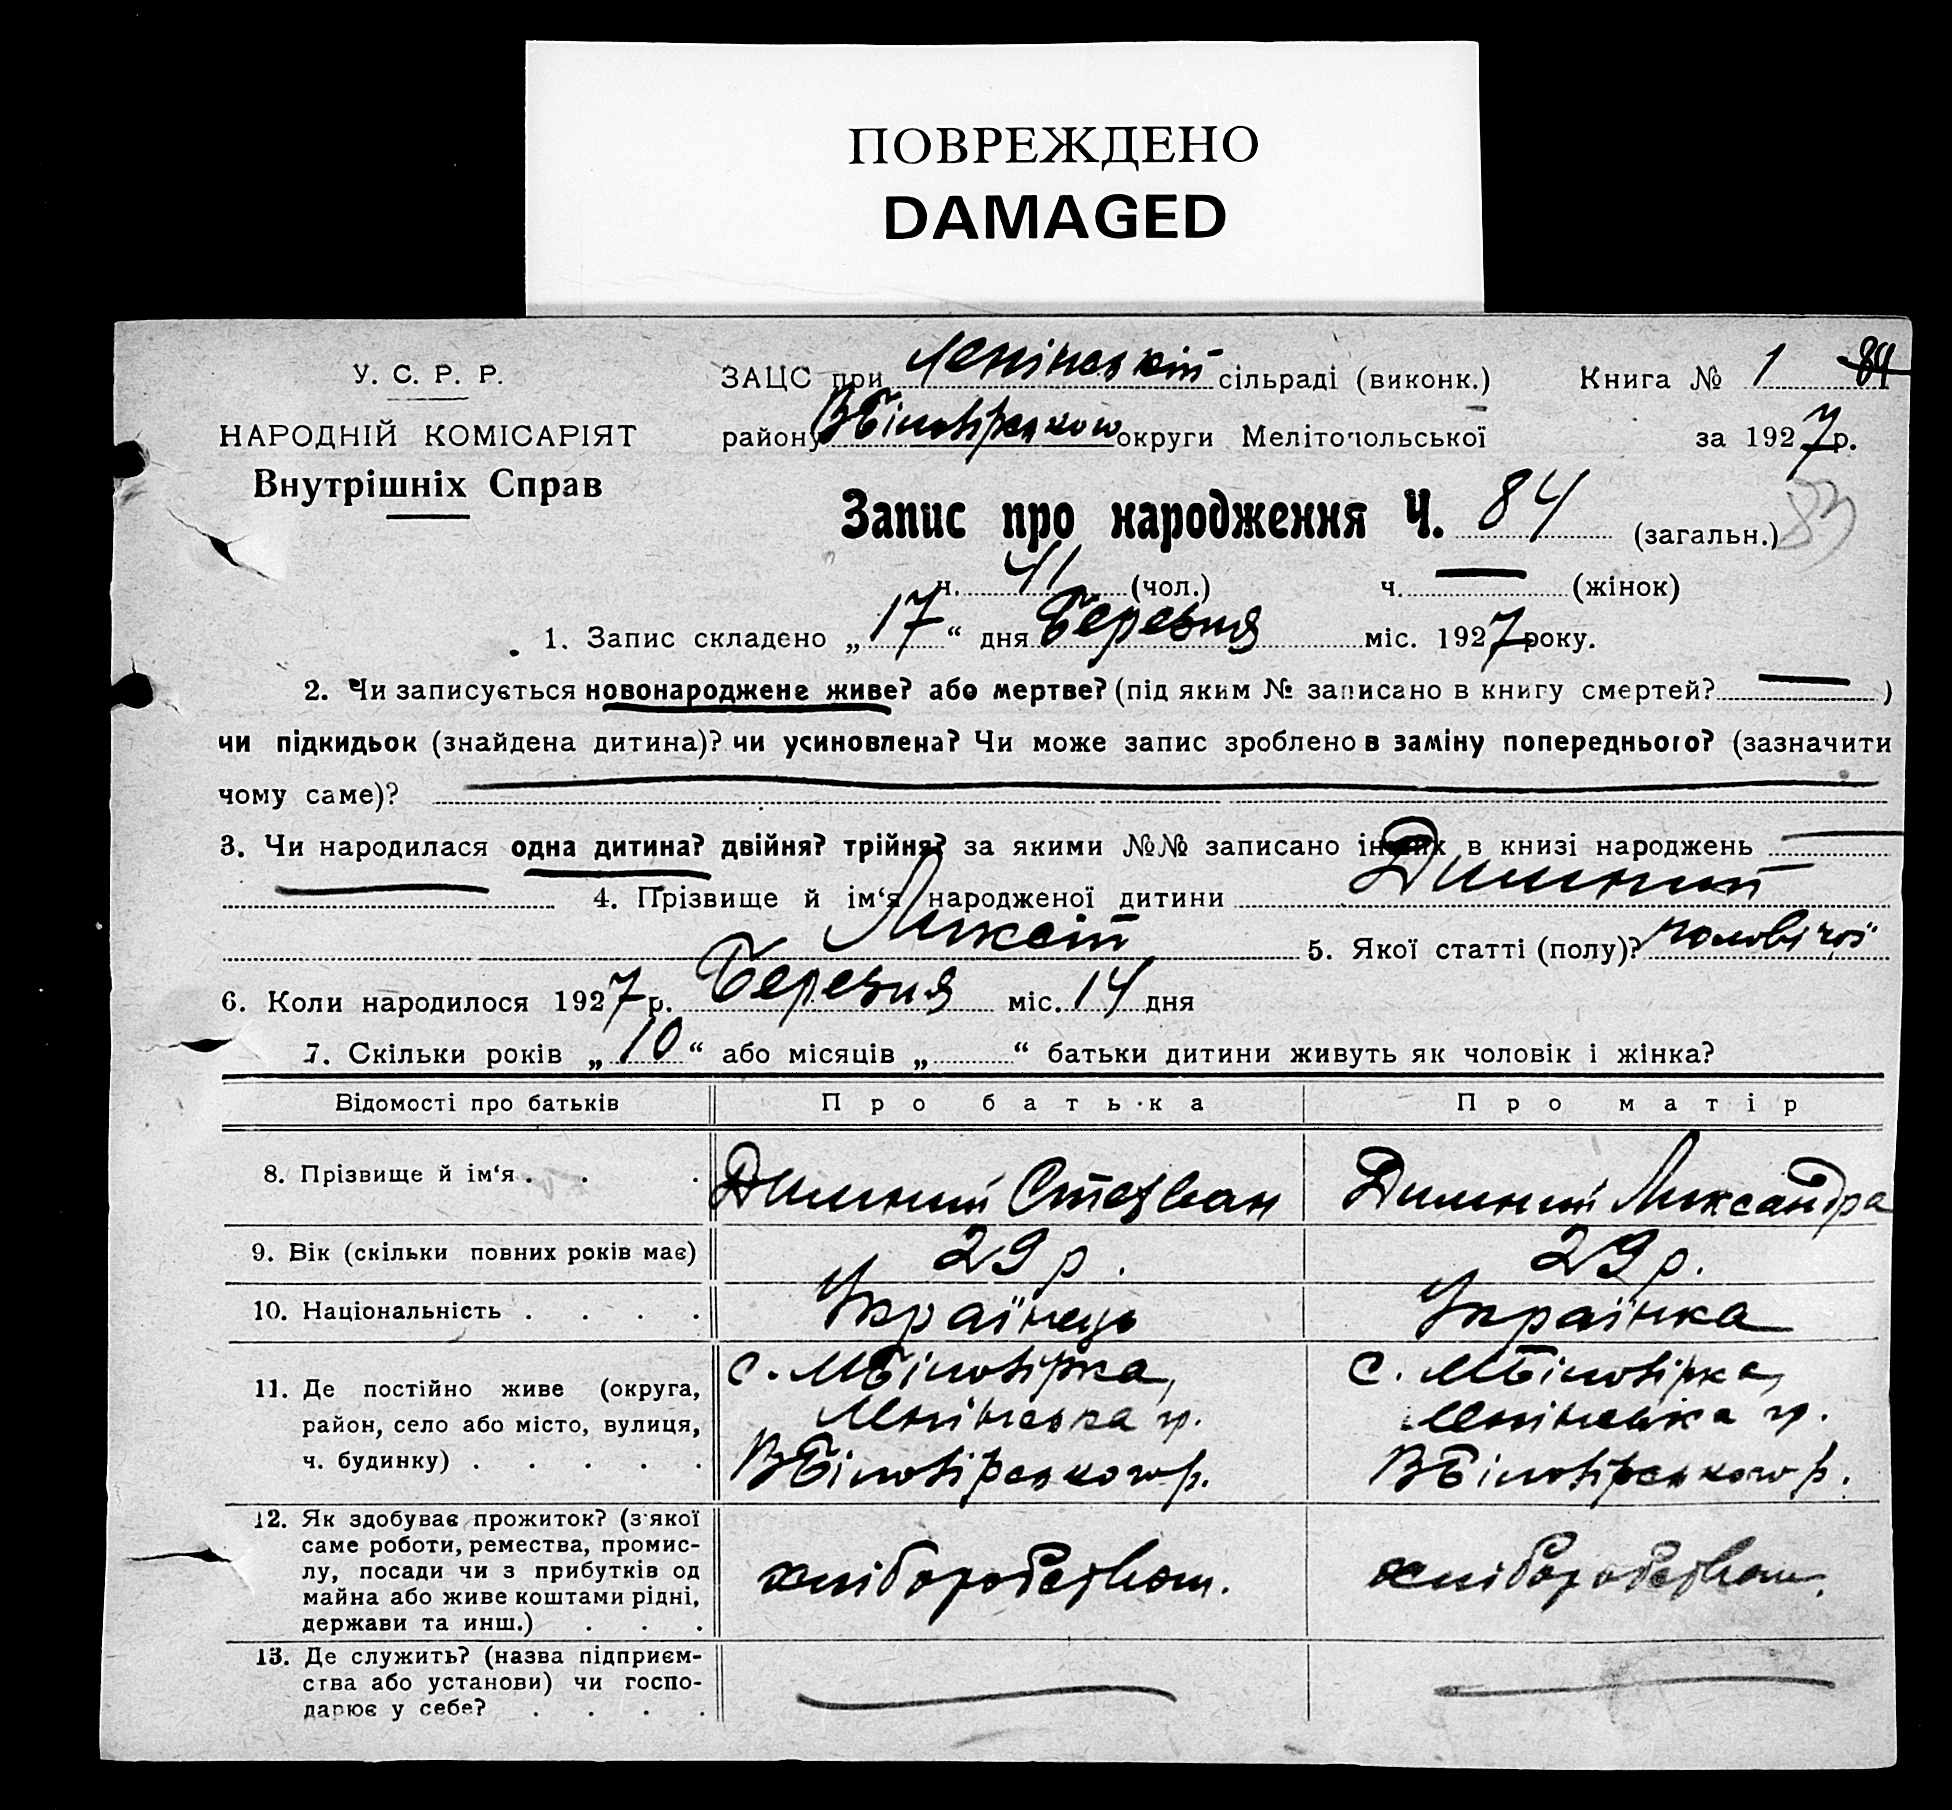 ПОВРЕЖДЕНО
DAMAGED
У. С. Р. Р.
НАРОДНІЙ КОМІСАРІЯТ
Внутрішніх Справ
ЗАЦС при Ленінській сільраді (виконк.) Книга № 1 84
району ВБілозірського округи Мелітопольської за 1927 р.
Запис про народження Ч. 84 (загальн.) 83
ч. 41 (чол.) ч. — (жінок)
1. Запис складено „17“ дня Березня міс. 1927 року.
2. Чи записується новонароджене живе? або мертве? (під яким № записано в книгу смертей? — )
чи підкидьок (знайдена дитина)? чи усиновлена? Чи може запис зроблено в заміну попереднього? (зазначити
чому саме)? —
3. Чи народилася одна дитина? двійня? трійня? за якими №№ записано інших в книзі народжень —
— 4. Прізвище й ім‘я народженої дитини Димний
Ликсій 5. Якої статті (полу)? чоловічої
6. Коли народилося 1927 р. Березня міс. 14 дня
7. Скільки років „10“ або місяців „ “ батьки дитини живуть як чоловік і жінка?
Відомості про батьків Про батька Про матір
8. Прізвище й ім‘я . . . Димний Степан Димний Ликсандра
9. Вік (скільки повних років має) 29 р. 29 р.
10. Національність . . . . Українець Українка
11. Де постійно живе (округа, район, село або місто, вулиця, ч. будинку) . . . . .
с. МБілозірка,
Ленінська гр.
ВБілозірського р.
с. МБілозірка,
Ленінська гр.
ВБілозірського р.
12. Як здобуває прожиток? (з якої
саме роботи, ремества, промис-
лу, посади чи з прибутків од
майна або живе коштами рідні,
держави та инш.) . . .
хліборобством.
хліборобством.
13. Де служить? (назва підприєм-
ства або установи) чи госпо-
дарює у себе? . . . .
— —